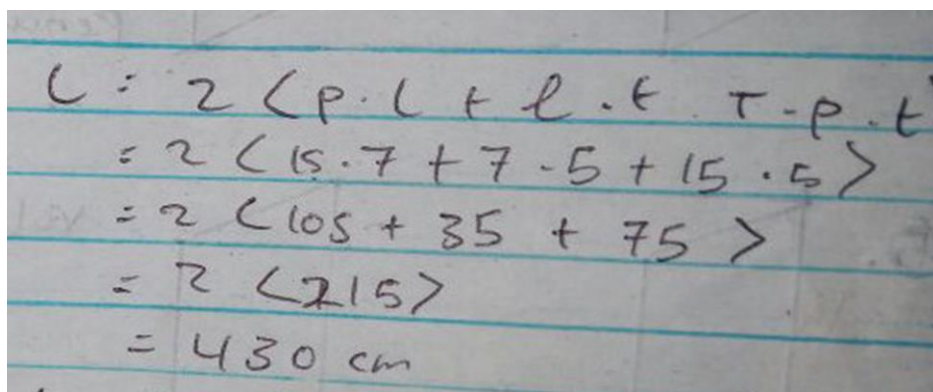 L = 2 < p . l + l . t + p . t
= 2 < 15 . 7 + 7 . 5 + 15 . 5 >
= 2 < 105 + 35 + 75 >
= 2 < 215 >
= 430 cm